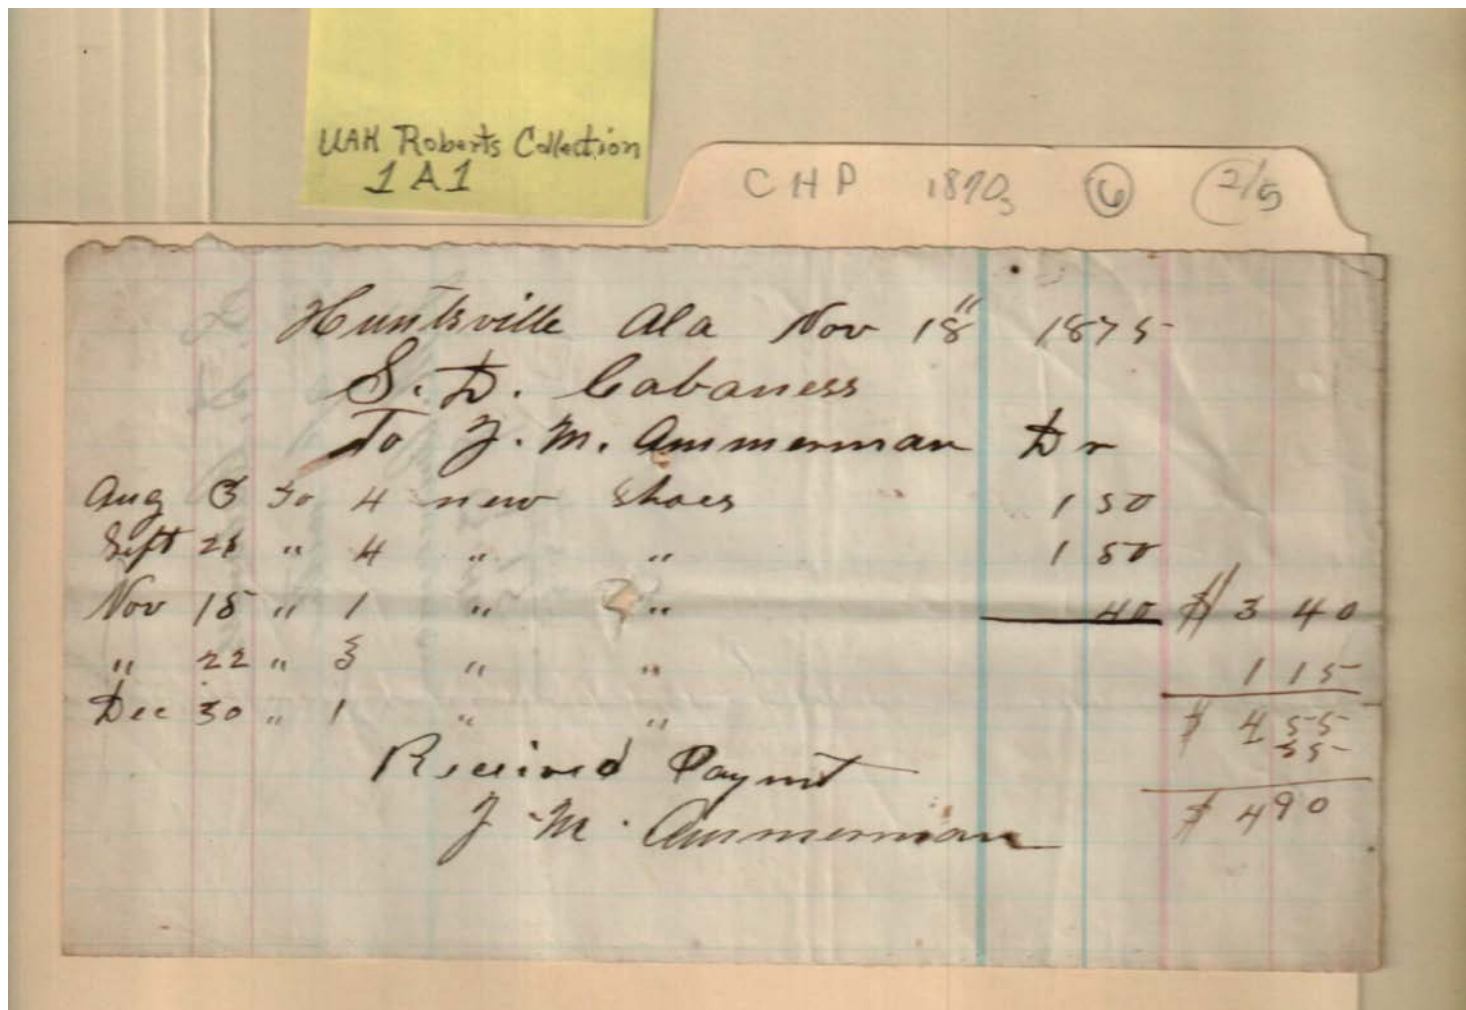 UAH Roberts Collection
1A1
CHP 1870s 6 2/5
Huntsville Ala Nov 18" 1875
S. D. Cabaness
To J. M. Ammerman Dr
Aug 3 To 4 new Shoes 1 50
Sept 28 " 4 " " 1 50
Nov 15 " 1 " " 40 $ 3 40
" 22 " 3 " " 1 15
Dec 30 " 1 " " $ 4 55
35
Received Paymt $ 4 90
J. M. Ammerman